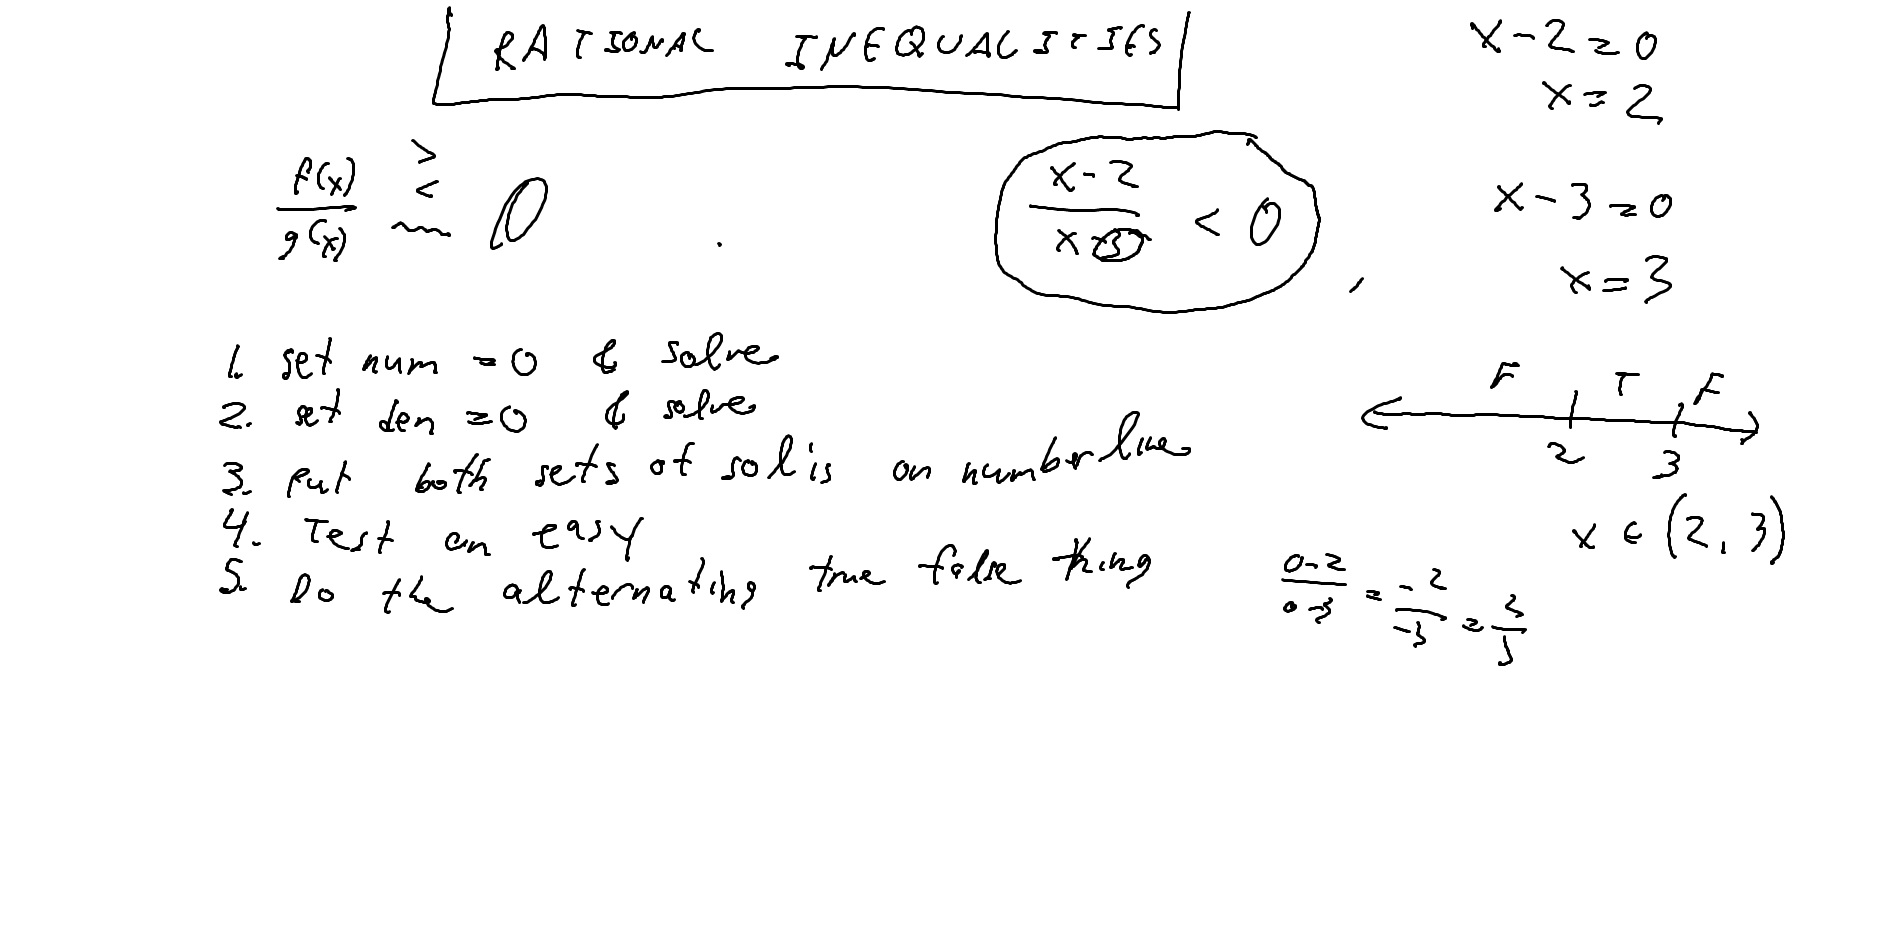 RATIONAL INEQUALITIES
x-2=0
x=2
f(x)/g(x) > < 0
x-2/x-3 < 0
x-3=0
x=3
1. set num =0 & solve
2. set den =0 & solve
3. put both sets of sol's on number line
4. Test an easy
5. Do the alternating true false thing
F T F
2 3
x ∈ (2, 3)
0-2/0-3 = -2/-3 = 2/3